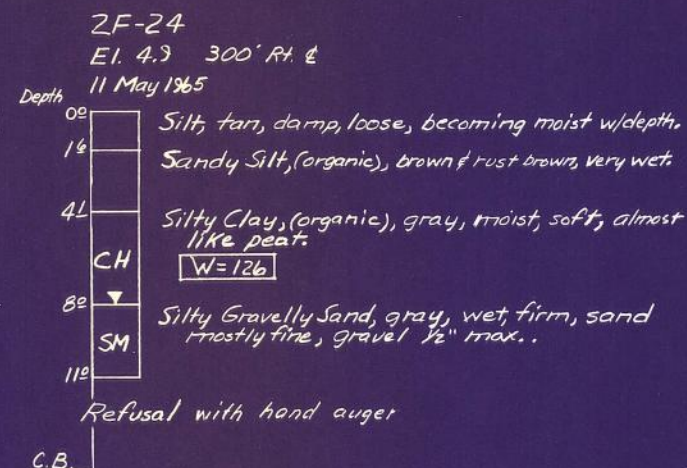 2F-24
El. 4.9 300' Rt. ℄
11 May 1965
Depth
0⁰ Silt, tan, damp, loose, becoming moist w/depth.
1⁶ Sandy Silt, (organic), brown & rust brown, very wet.
4¹ Silty Clay, (organic), gray, moist, soft, almost
like peat.
CH
W=126
8⁰ Silty Gravelly Sand, gray, wet, firm, sand
mostly fine, gravel ½" max..
SM
11⁰
Refusal with hand auger
C.B.